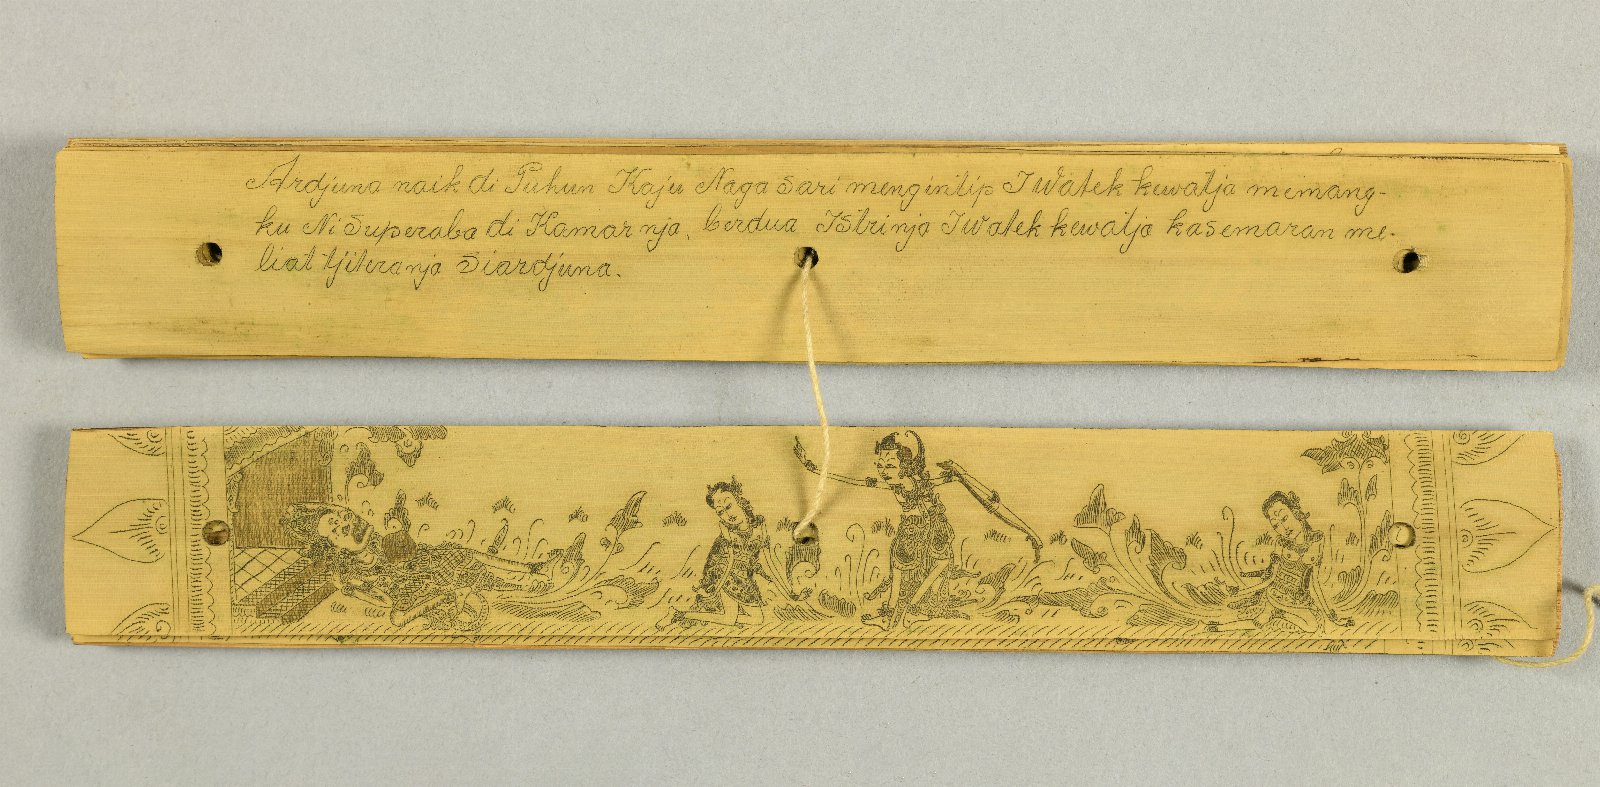 Ardjuna naik di Puhun Kaju Naga sari mengintip I Watek kewatja memang-
ku Ni Superaba di Kamar nja, berdua Istrinja I Watek kewatja kasemaran me-
liat tjiteranja Siardjuna.